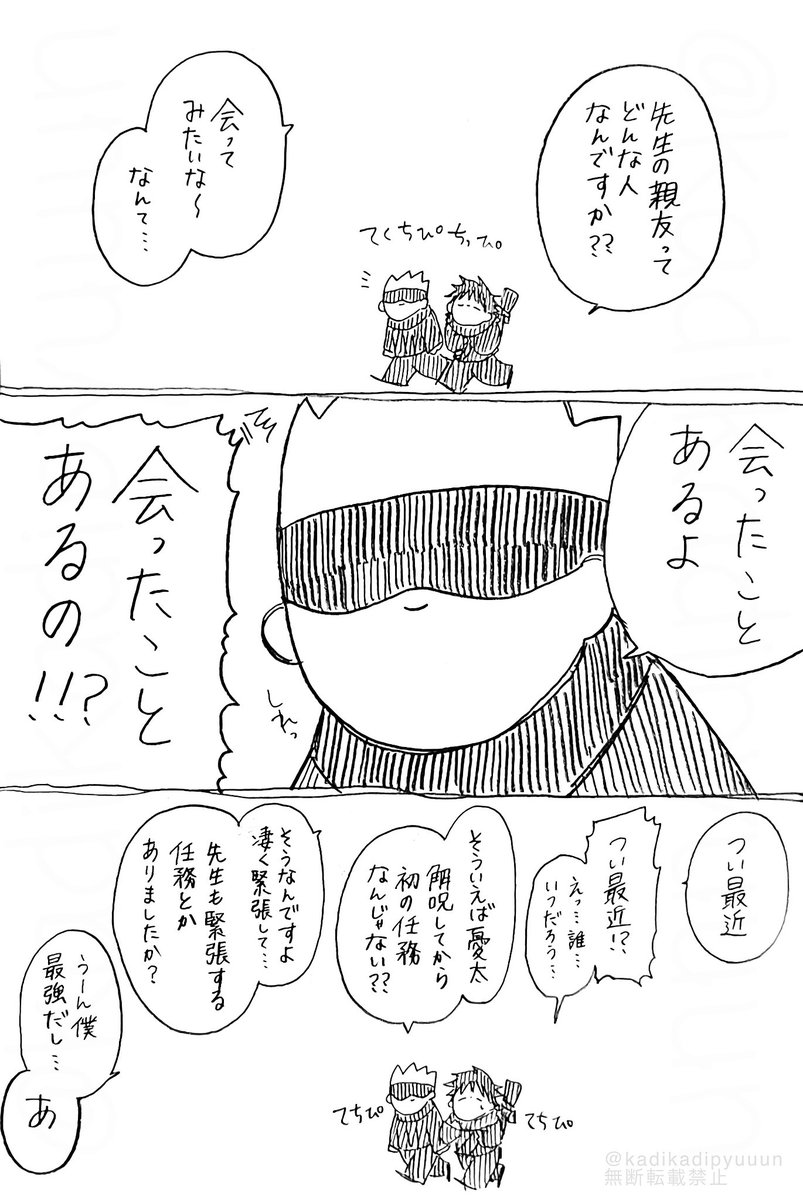 先生の親友って
どんな人
なんですか??
会って
みたいな～
なんて…
てくちぴちっぴ
会ったこと
あるよ
しれっ
会ったこと
あるの!!?
つい最近
つい最近!?
えっ…誰…
いつだろう…
そういえば憂太
解呪してから
初の任務
なんじゃない??
そうなんですよ
凄く緊張して…
先生も緊張する
任務とか
ありましたか?
うーん僕
最強だし…
あ
てちぴ
てちぴ
@kadikadipyuuun
無断転載禁止